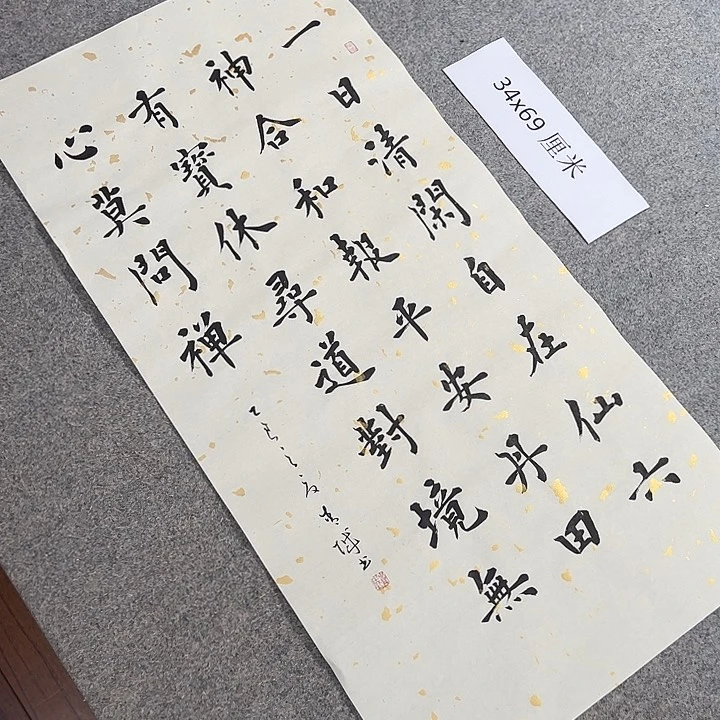 一日清閑自在仙六
神合和報平安丹田
有寶休尋道對境無
心莫問禪
乙巳之夏
34×69 厘米